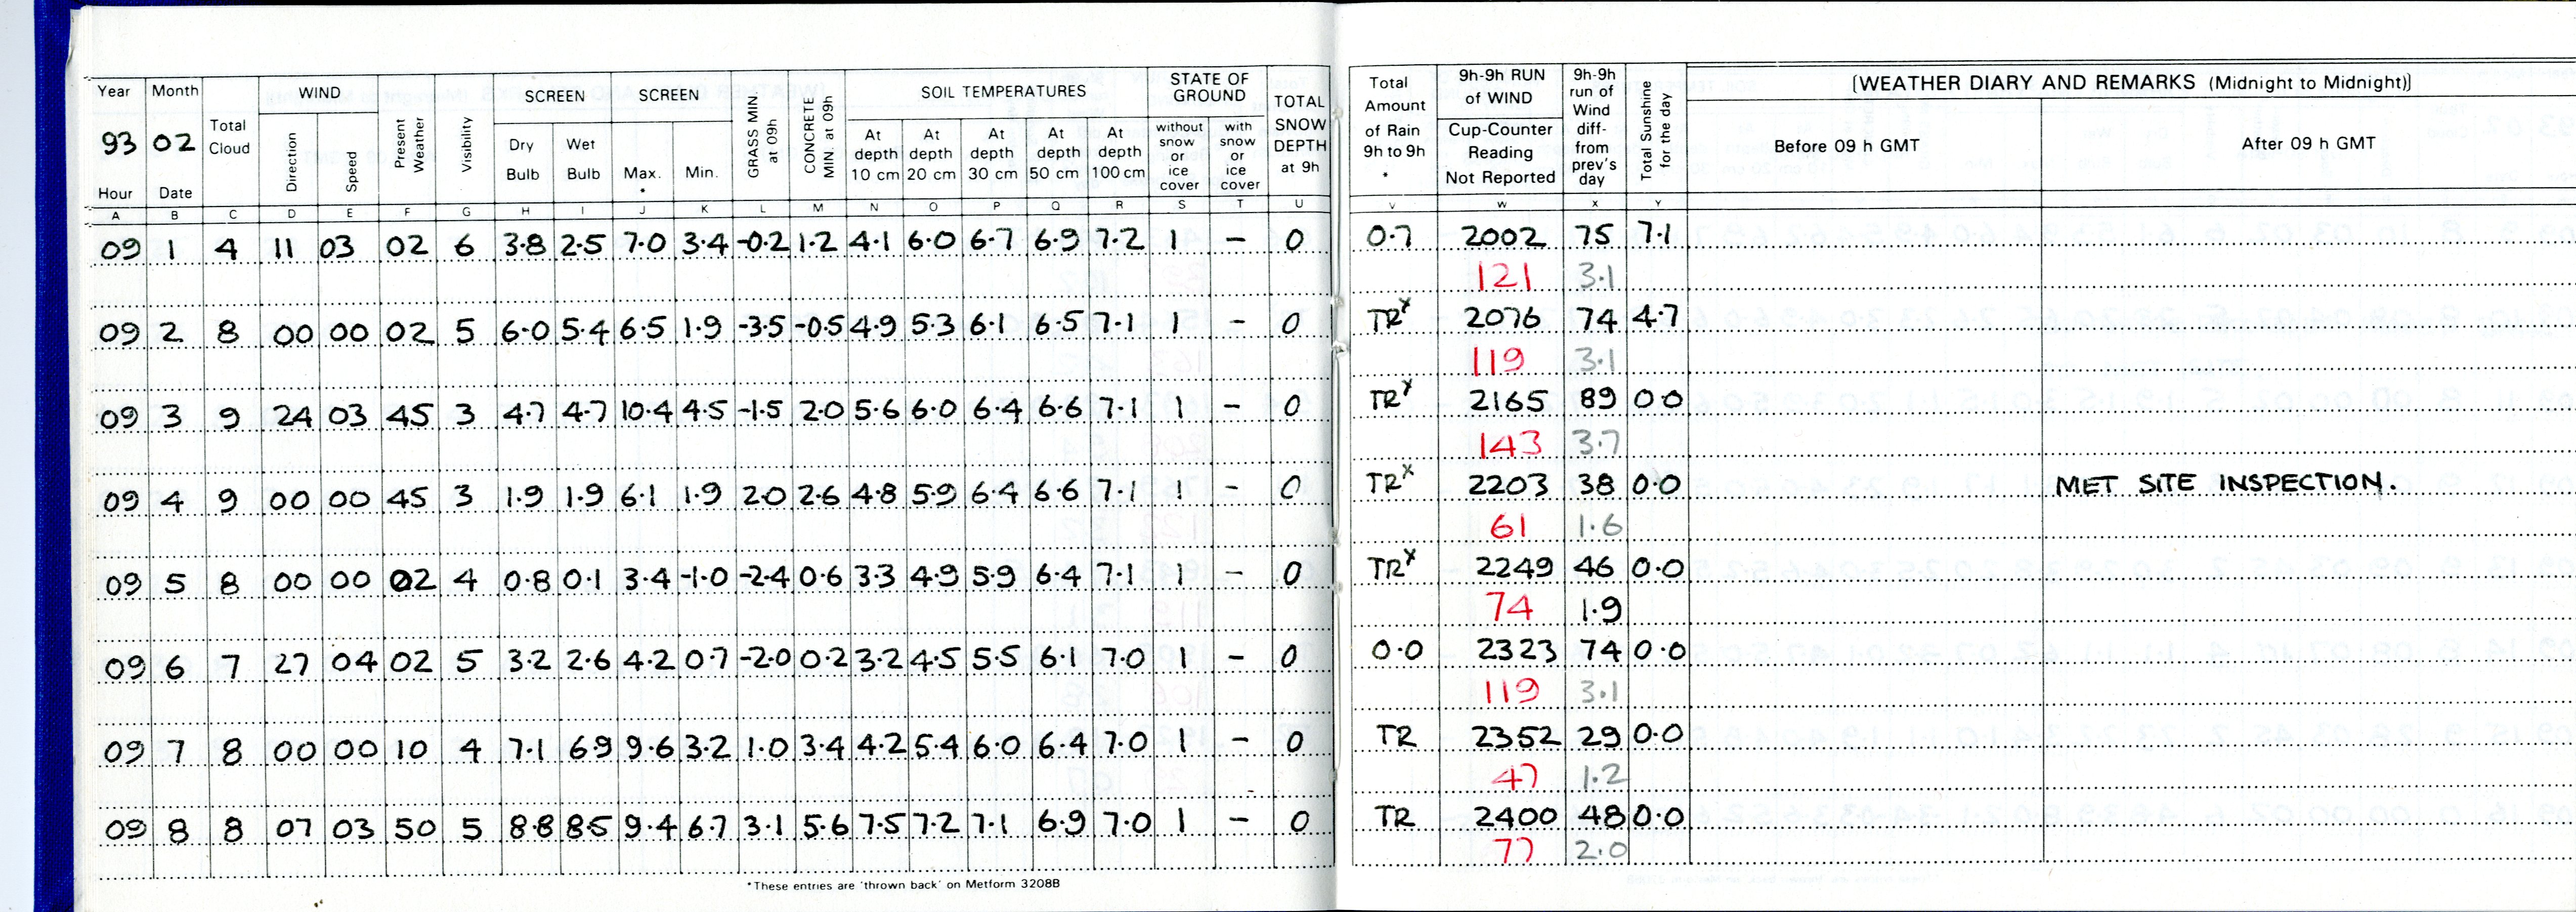 Year Month Total Cloud WIND Present Weather Visibility SCREEN SCREEN GRASS MIN at 09h CONCRETE MIN. at 09h SOIL TEMPERATURES STATE OF GROUND TOTAL SNOW DEPTH at 9h Total Amount of Rain 9h to 9h * 9h-9h RUN of WIND 9h-9h run of Wind diff- from prev's day Total Sunshine for the day [WEATHER DIARY AND REMARKS (Midnight to Midnight)]
93 02 Direction Speed Dry Bulb Wet Bulb Max. * Min. At depth 10 cm At depth 20 cm At depth 30 cm At depth 50 cm At depth 100 cm without snow or ice cover with snow or ice cover Cup-Counter Reading Not Reported Before 09 h GMT After 09 h GMT
Hour Date
A B C D E F G H I J K L M N O P Q R S T U V W X Y
09 1 4 11 03 02 6 3.8 2.5 7.0 3.4 -0.2 1.2 4.1 6.0 6.7 6.9 7.2 1 – 0 0.7 2002 75 7.1
121 3.1
09 2 8 00 00 02 5 6.0 5.4 6.5 1.9 -3.5 -0.5 4.9 5.3 6.1 6.5 7.1 1 – 0 TRx 2076 74 4.7
119 3.1
09 3 9 24 03 45 3 4.7 4.7 10.4 4.5 -1.5 2.0 5.6 6.0 6.4 6.6 7.1 1 – 0 TRx 2165 89 0.0
143 3.7
09 4 9 00 00 45 3 1.9 1.9 6.1 1.9 2.0 2.6 4.8 5.9 6.4 6.6 7.1 1 – 0 TRx 2203 38 0.0 MET SITE INSPECTION.
61 1.6
09 5 8 00 00 02 4 0.8 0.1 3.4 -1.0 -2.4 0.6 3.3 4.9 5.9 6.4 7.1 1 – 0 TRx 2249 46 0.0
74 1.9
09 6 7 27 04 02 5 3.2 2.6 4.2 0.7 -2.0 0.2 3.2 4.5 5.5 6.1 7.0 1 – 0 0.0 2323 74 0.0
119 3.1
09 7 8 00 00 10 4 7.1 6.9 9.6 3.2 1.0 3.4 4.2 5.4 6.0 6.4 7.0 1 – 0 TR 2352 29 0.0
47 1.2
09 8 8 07 03 50 5 8.8 8.5 9.4 6.7 3.1 5.6 7.5 7.2 7.1 6.9 7.0 1 – 0 TR 2400 48 0.0
77 2.0
*These entries are 'thrown back' on Metform 3208B